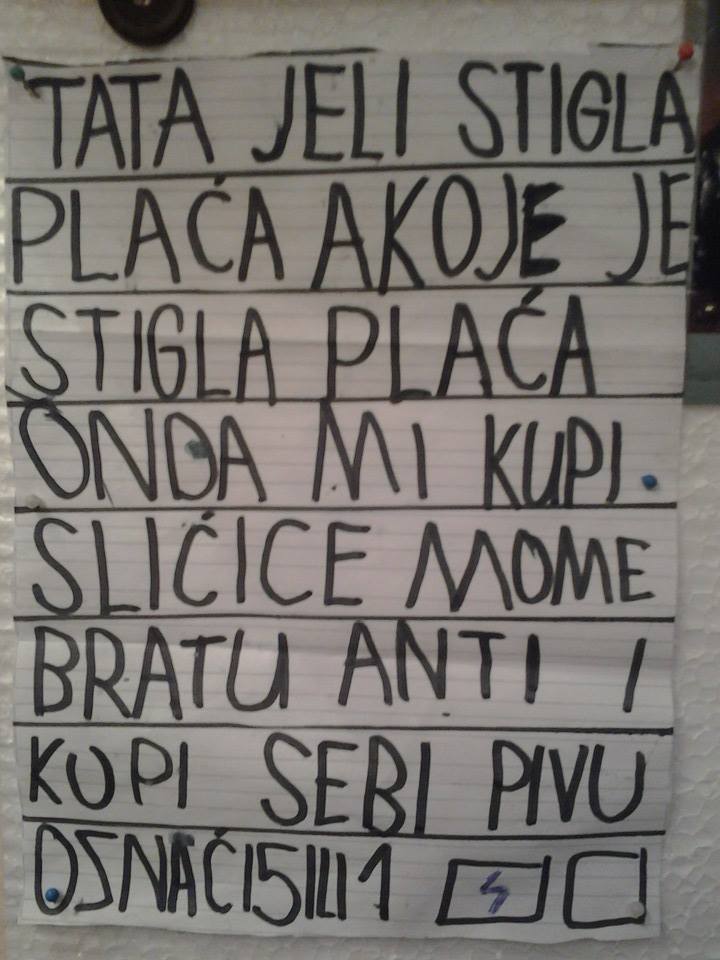 TATA JELI STIGLA
PLAĆA AKOJE JE
STIGLA PLAĆA
ONDA MI KUPI
SLIĆICE MOME
BRATU ANTI I
KUPI SEBI PIVU
OZNAĆI 5 ILI 1